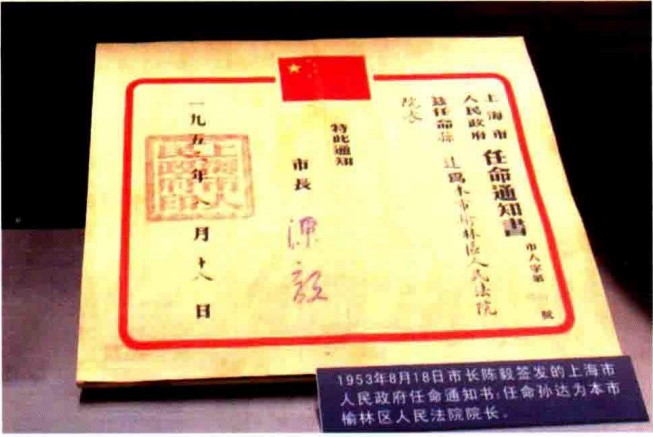 上海市人民政府 任命通知書 市人字第 號
兹任命孫達爲本市榆林區人民法院
院长
特此通知
市長 陳毅
一九五 年八月十八日
上海市人民政府印
1953年8月18日市长陈毅签发的上海市
人民政府任命通知书:任命孙达为本市
榆林区人民法院院长。